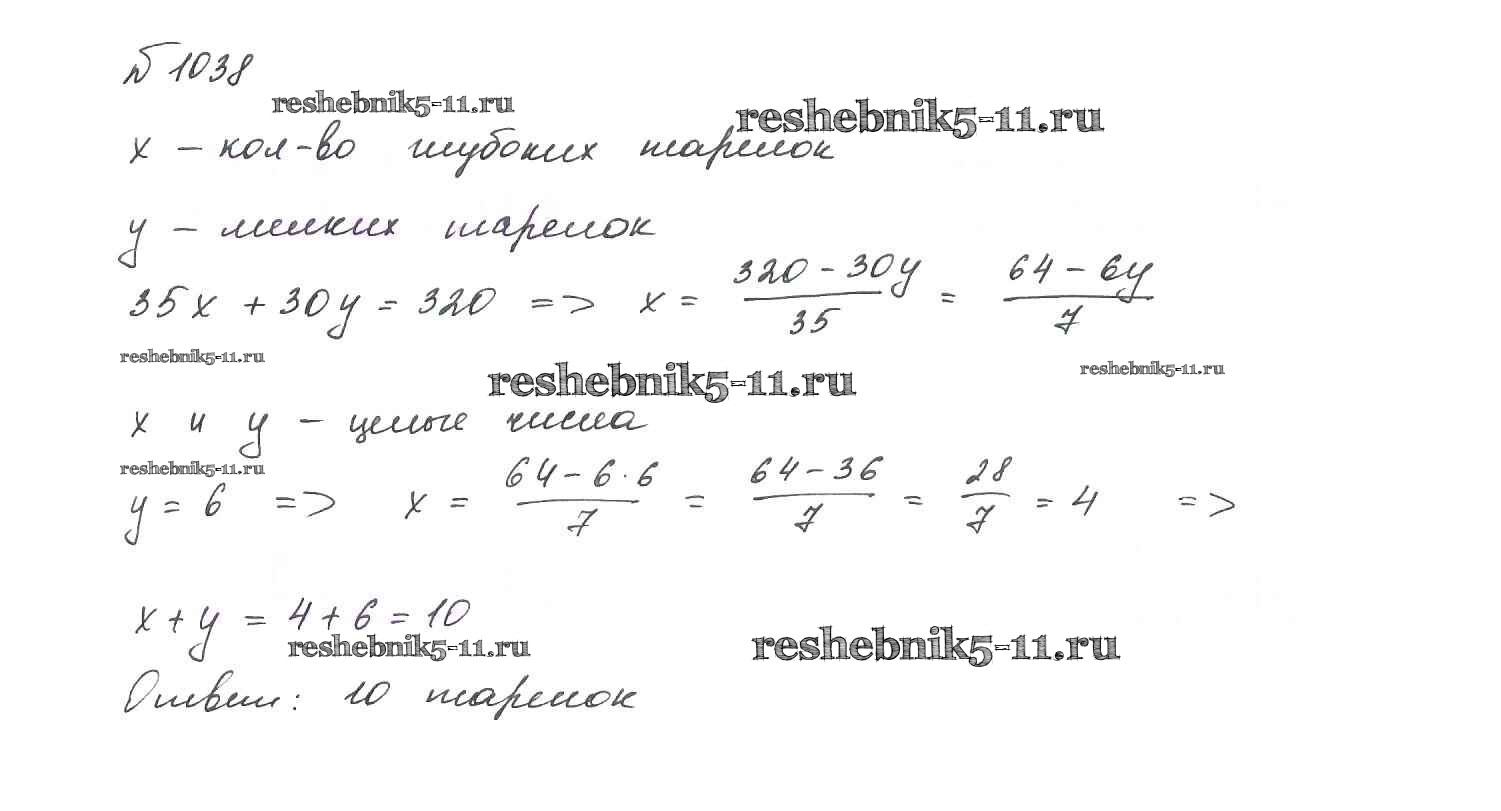 № 1038
reshebnik5-11.ru reshebnik5-11.ru
x – кол-во глубоких тарелок
y – мелких тарелок
35x + 30y = 320 => x = (320 - 30y)/35 = (64 - 6y)/7
reshebnik5-11.ru reshebnik5-11.ru reshebnik5-11.ru
x и y – целые числа
reshebnik5-11.ru
y = 6 => x = (64 - 6·6)/7 = (64 - 36)/7 = 28/7 = 4 =>
x + y = 4 + 6 = 10
reshebnik5-11.ru reshebnik5-11.ru
Ответ: 10 тарелок